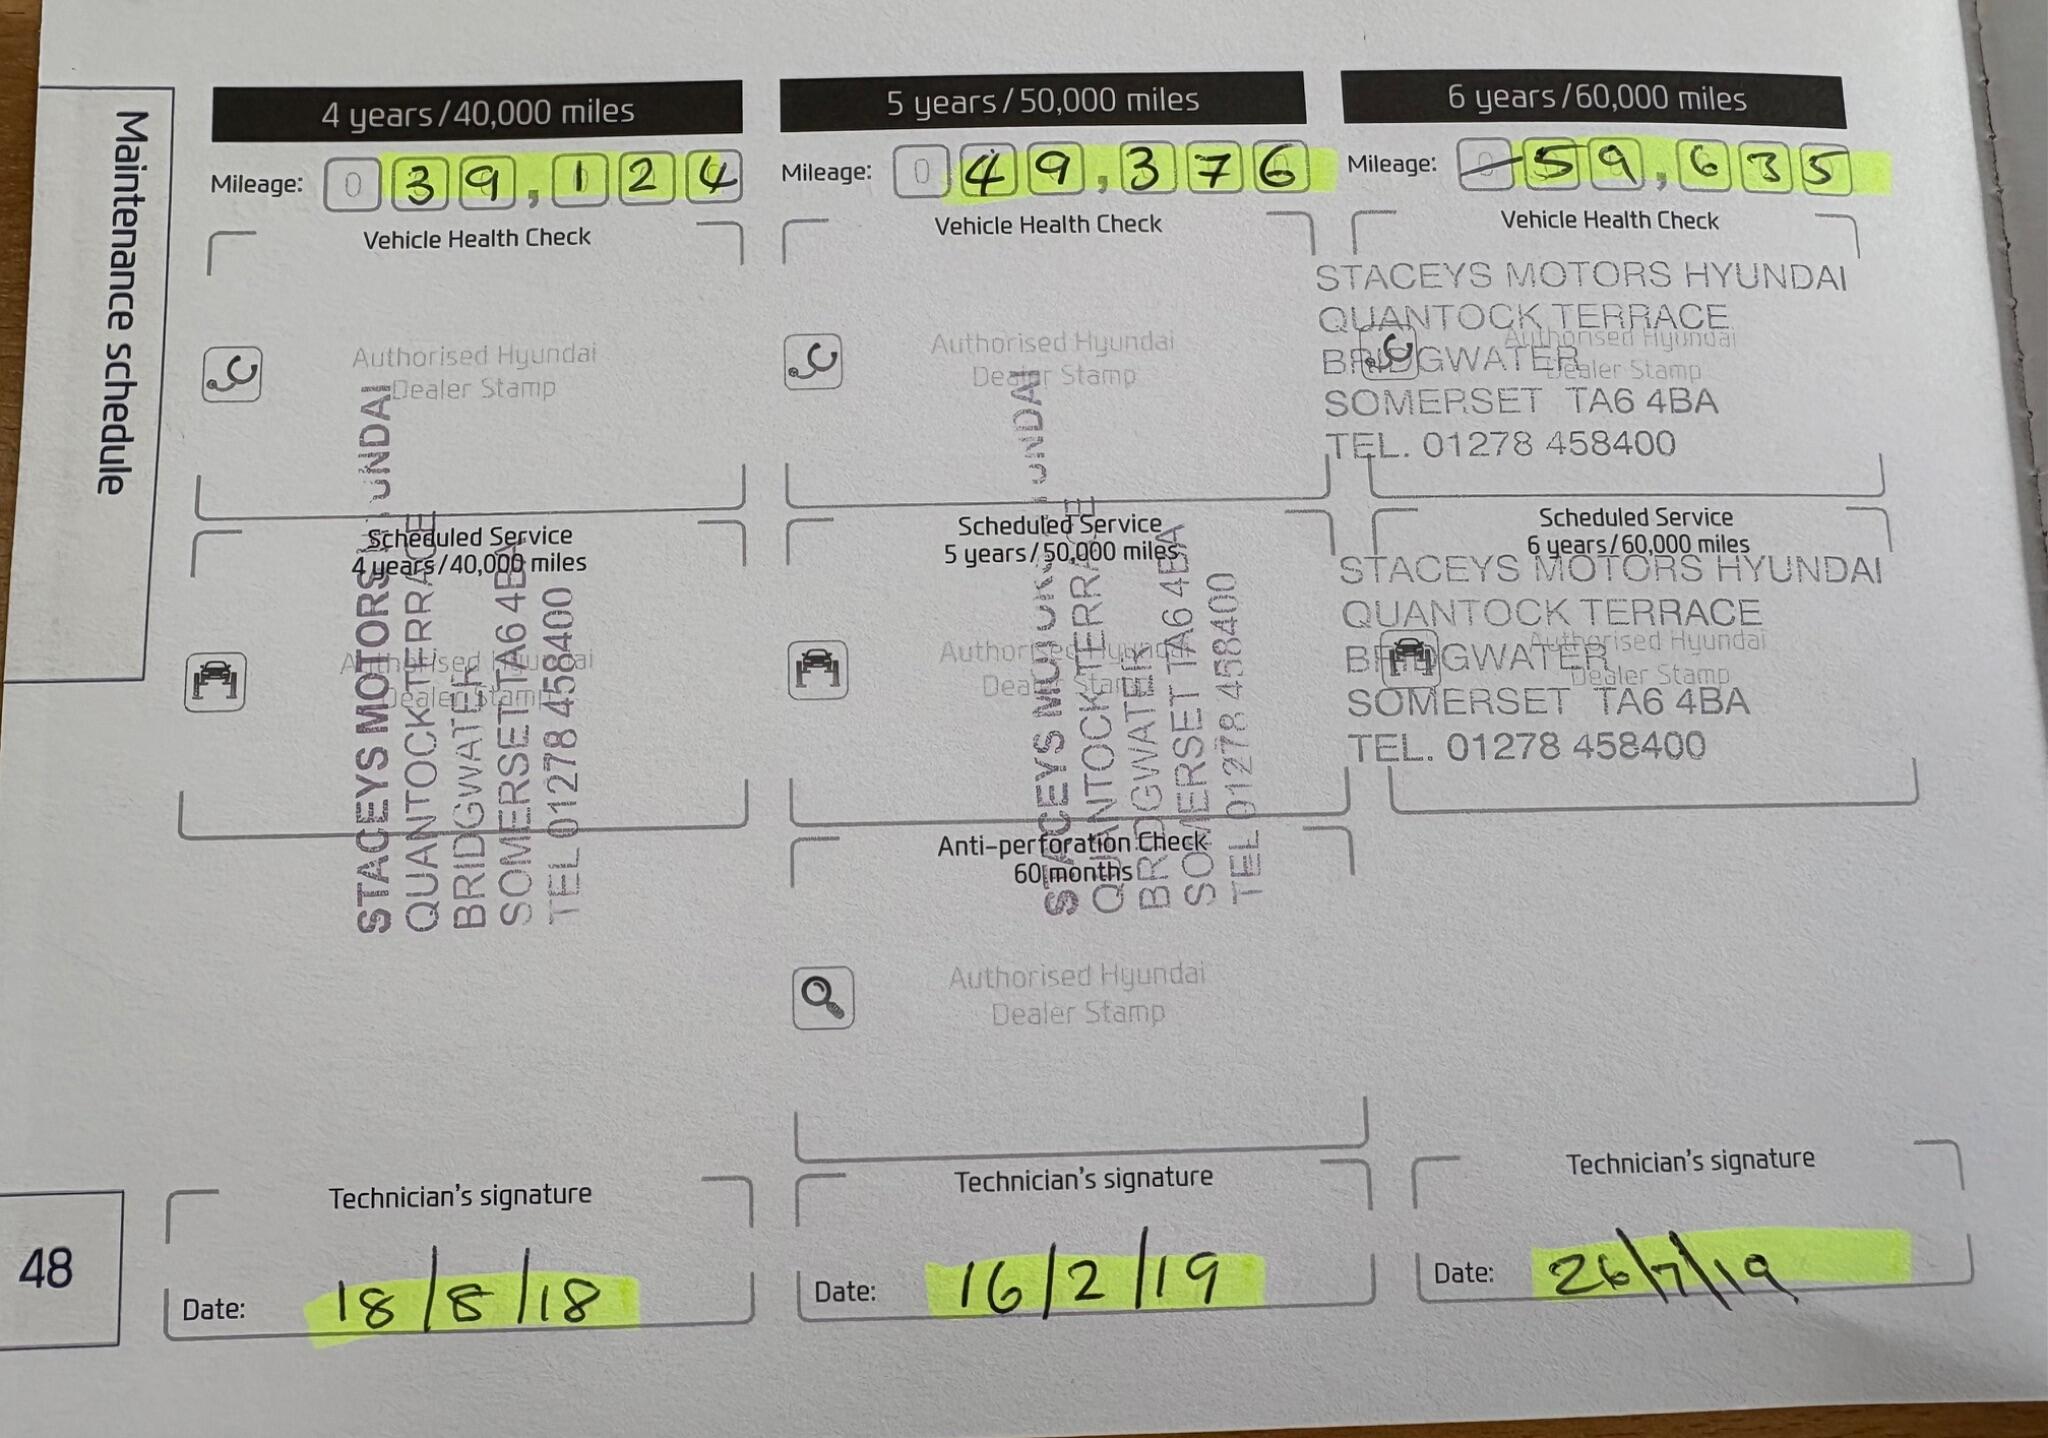 Maintenance schedule
4 years/40,000 miles
Mileage: 0 39,124
Vehicle Health Check
Authorised Hyundai
Dealer Stamp
Scheduled Service
4 years/40,000 miles
Authorised Hyundai
Dealer Stamp
STACEYS MOTORS HYUNDAI
QUANTOCK TERRACE
BRIDGWATER
SOMERSET TA6 4BA
TEL 01278 458400
Technician's signature
Date: 18/8/18
5 years/50,000 miles
Mileage: 0 49,376
Vehicle Health Check
Authorised Hyundai
Dealer Stamp
Scheduled Service
5 years/50,000 miles
Authorised Hyundai
Dealer Stamp
STACEYS MOTORS HYUNDAI
QUANTOCK TERRACE
BRIDGWATER
SOMERSET TA6 4BA
TEL 01278 458400
Anti-perforation Check
60 months
Authorised Hyundai
Dealer Stamp
Technician's signature
Date: 16/2/19
6 years/60,000 miles
Mileage: 0 59,635
Vehicle Health Check
Authorised Hyundai
Dealer Stamp
STACEYS MOTORS HYUNDAI
QUANTOCK TERRACE
BRIDGWATER
SOMERSET TA6 4BA
TEL. 01278 458400
Scheduled Service
6 years/60,000 miles
Authorised Hyundai
Dealer Stamp
STACEYS MOTORS HYUNDAI
QUANTOCK TERRACE
BRIDGWATER
SOMERSET TA6 4BA
TEL. 01278 458400
Technician's signature
Date: 26/7/19
48